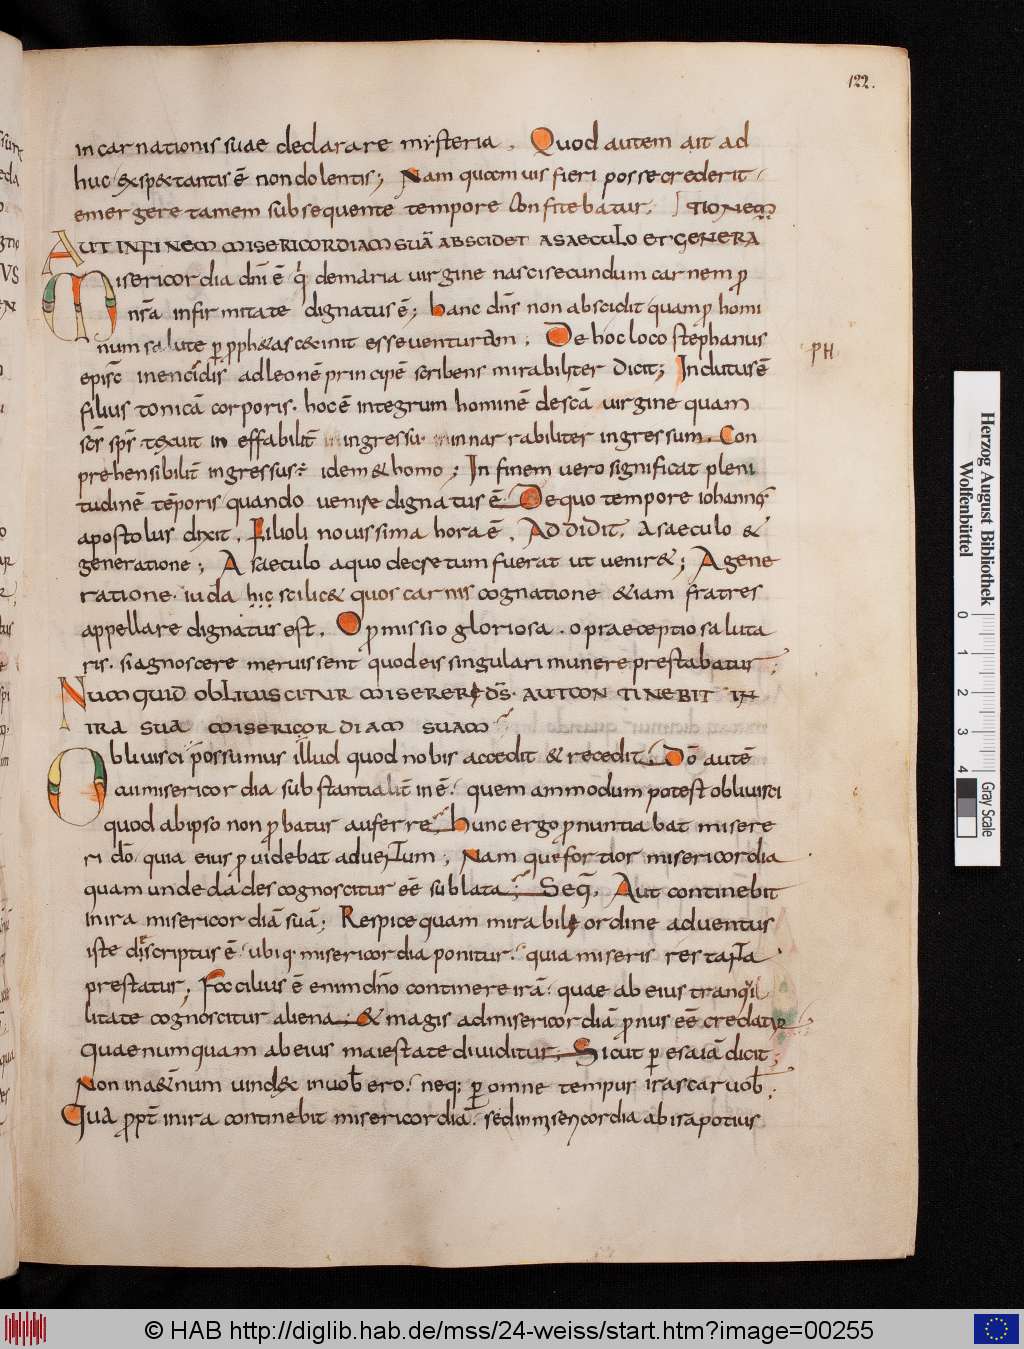 122.
incarnationis suae declarare mysteria. Quod autem ait ad
huc &sp&tantis ē non dolentis; Nam quoom uis fieri posse crederit
emergere tamem subsequente tempore confitebatur. [TIONEM
AUT IN FINEM MISERICORDIAM SUĀ ABSCIDET A SAECULO ET GENERA
Misericordia dn̄i ē q demaria uirgine nasci secundum carnem p
nr̄a infirmitate dignatus ē; hanc dn̄s non abscidit quam p homi
num salute p pph&as cecinit esse uenturam. De hoc loco stephanus
episc̄ inencidis ad leonē principē scribens mirabiliter dicit; Indutus ē
filius tonicā corporis. hoc ē integrum hominē de scā uirgine quam
sc̄s sp̄s texuit in effabilit̄ ingressu. innarrabiliter ingressum. Con
prehensibilit̄ ingressus: idem & homo; In finem uero significat pleni
tudinē tēporis quando uenire dignatus ē. De quo tempore iohannis
apostolus dixit. Filioli nouissima hora ē. Addidit. A saeculo &
generatione; A saeculo a quo decretum fuerat ut uenir&; A gene
ratione. iuda hic scilic& quos carnis cognatione &iam fratres
appellare dignatus est. O pmissio gloriosa. o praeceptio saluta
ris. si agnoscere meruissent quod eis singulari munere prestabatur;
NUMQUID OBLIUISCITUR MISERERI DS̄. AUT CONTINEBIT IN
IRA SUA MISERICORDIAM SUAM
Obliuisci possumus illud quod nobis accedit & recedit. Dō autē
cui misericordia substantialit̄ in ē. quem ammodum potest obliuisci
quod ab ipso non pbatur auferre. hunc ergo pnuntiabat misere
ri dō. quia eius puidebat aduentum; Nam que fortior misericordia
quam unde dades cognoscitur eē sublata; Seq̄. Aut continebit
in ira misericordiā suā; Respice quam mirabili ordine aduentus
iste discriptus ē. ubiq misericordia ponitur. quia miseris res tanta
prestatur; Facilius ē enim dn̄o continere irā. quae ab eius tranquil
litate cognoscitur aliena; & magis ad misericordiā pnus eē credatur
Quae numquam ab eius maiestate diuiditur; Sicut p esaiā dicit;
Non in a&num uindic& in uob ero. neq; p omne tempus irascar uob;
Qua ppt̄ in ira continebit misericordiā. sed in misericordia ab ira potius
PH
Herzog August Bibliothek
Wolfenbüttel
0 1 2 3 4
Gray Scale
© HAB http://diglib.hab.de/mss/24-weiss/start.htm?image=00255